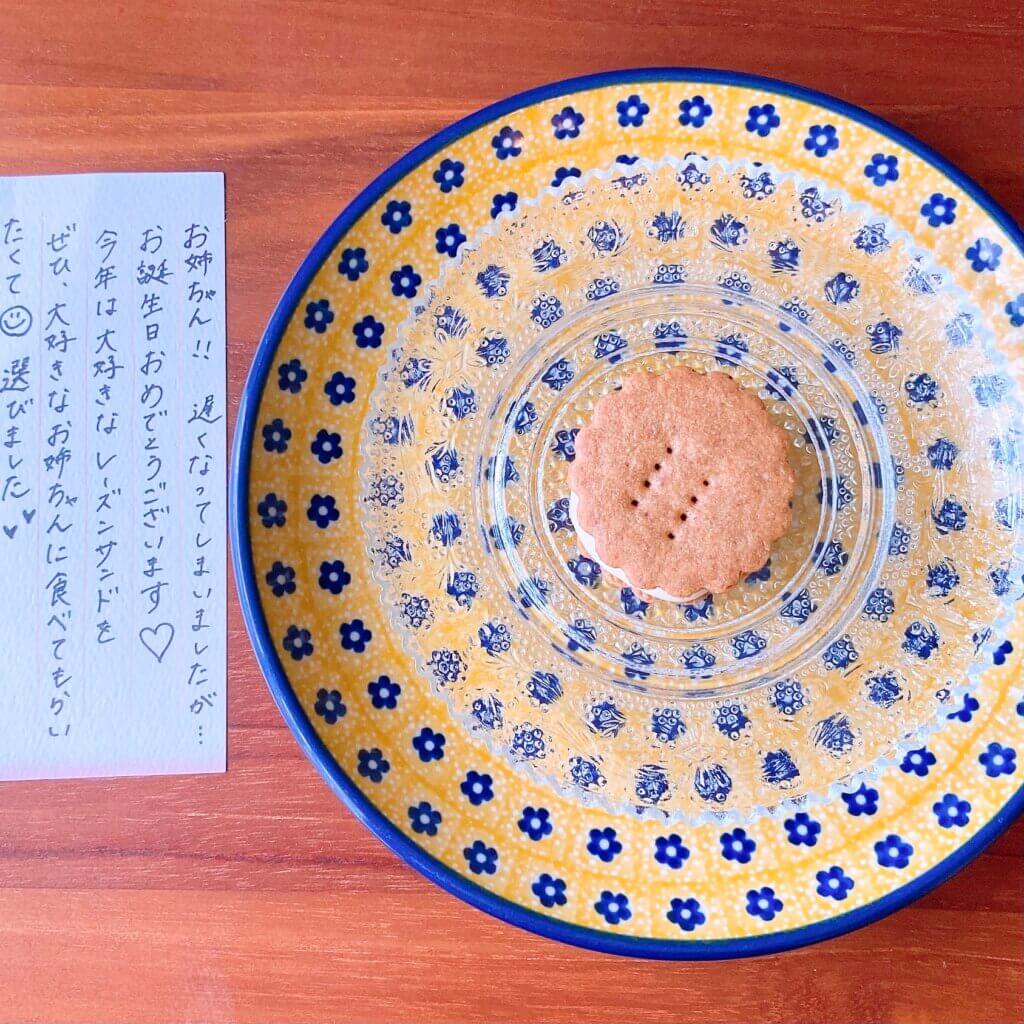 お姉ちゃん!! 遅くなってしまいましたが…
お誕生日おめでとうございます♡
今年は大好きなレーズンサンドを
ぜひ、大好きなお姉ちゃんに食べてもらい
たくて☺選びました♥♥